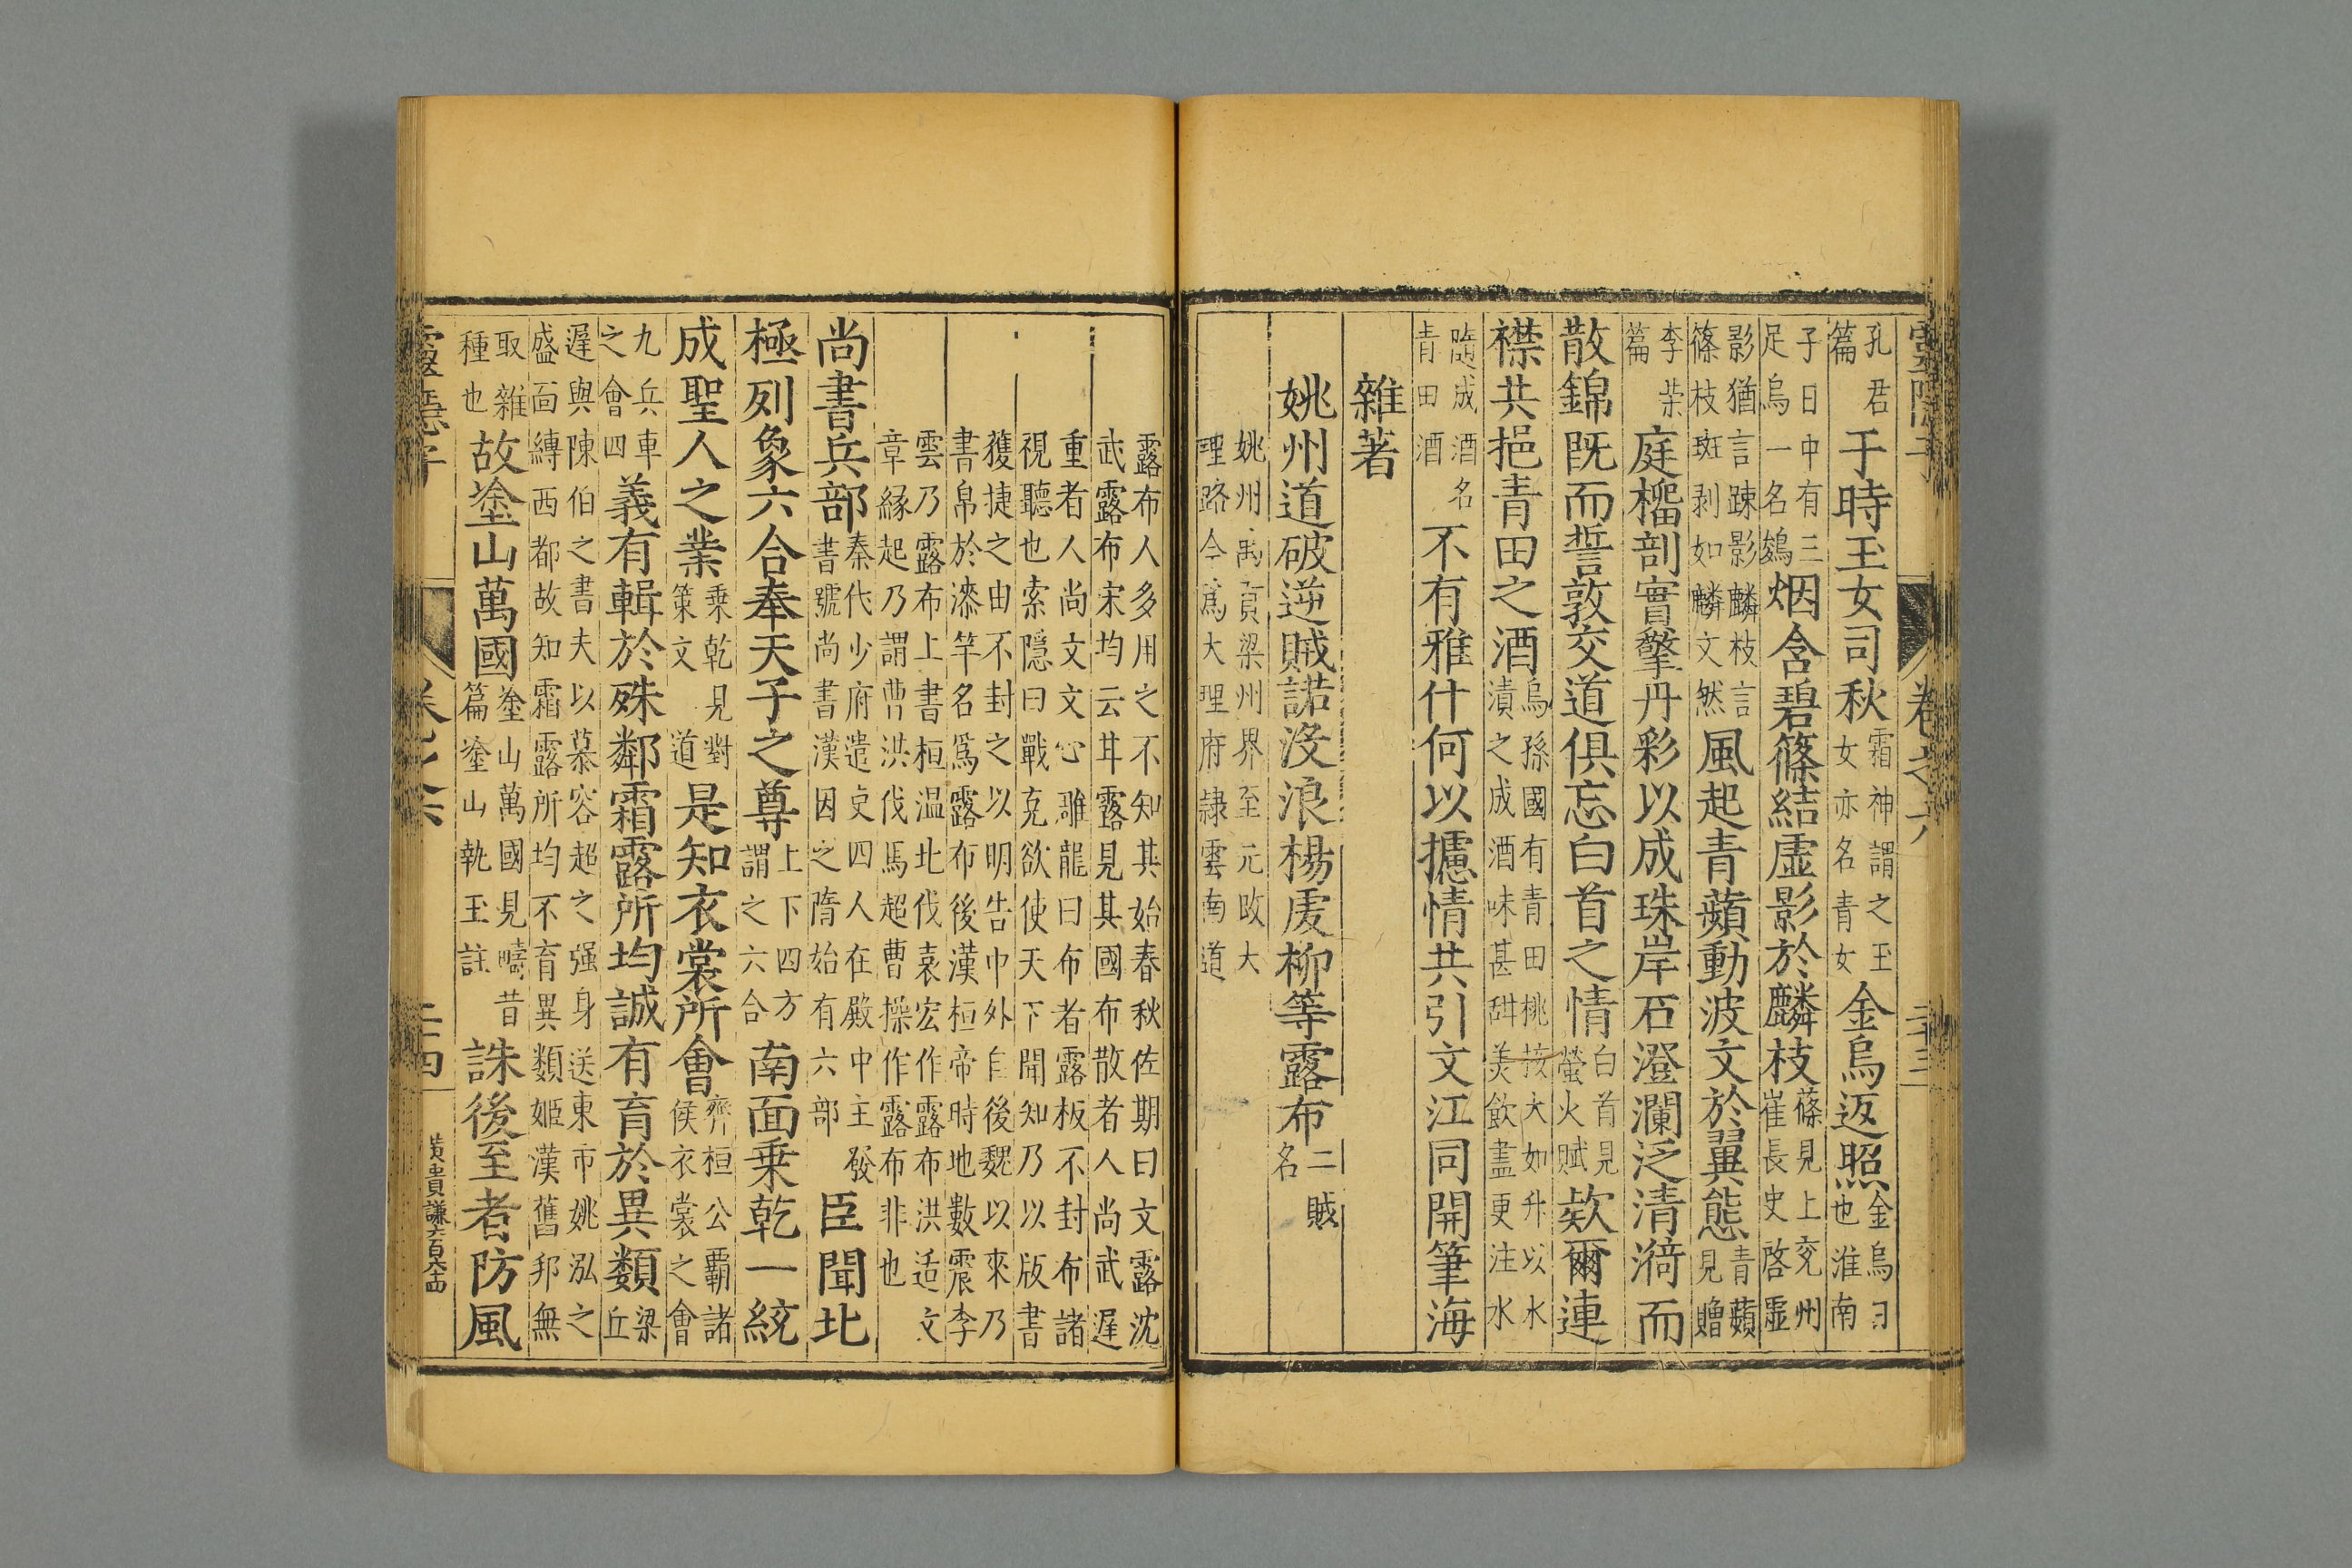 靈隱子 卷之六 二十三
孔君
篇
于時玉女司秋
霜神謂之玉
女亦名青女
金烏返照
金烏日
也淮南
子日中有三
足烏一名鷁
烟含碧篠結虛影於麟枝
篠見上兖州
崔長史啓虛
影猶言踈影麟枝言
篠枝斑剥如麟文然
風起青蘋動波文於翼態
青蘋
見贈
李榮
篇
庭橊剖實擎丹彩以成珠岸石澄瀾泛清漪而
散錦旣而誓敦交道俱忘白首之情
白首見
螢火賦
欵爾連
襟共挹青田之酒
烏孫國有青田桃核大如升以水
漬之成酒味甚甜美飲盡更注水
隨成酒名
青田酒
不有雅什何以攄情共引文江同開筆海
雜著
姚州道破逆賊諾沒浪楊虔柳等露布
二賊
名
姚州禹貢梁州界至元改大
理路今爲大理府隷雲南道
露布人多用之不知其始春秋佐期曰文露沈
武露布宋均云甘露見其國布散者人尚武遲
重者人尚文文心雕龍曰布者露板不封布諸
視聽也索隱曰戰克欲使天下聞知乃以版書
獲捷之由不封之以明告中外自後魏以來乃
書帛於漆竿名爲露布後漢桓帝時地數震李
雲乃露布上書桓温北伐袁宏作露布洪适文
章緣起乃謂曹洪伐馬超曹操作露布非也
尚書兵部
秦代少府遣吏四人在殿中主發
書號尚書漢因之隋始有六部
臣聞北
極列象六合奉天子之尊
上下四方
謂之六合
南面乗乾一統
成聖人之業
乗乾見對
策文道
是知衣裳所會
齊桓公覇諸
侯衣裳之會
九兵車
之會四
義有輯於殊鄰霜露所均誠有育於異類
梁
丘
遲與陳伯之書夫以慕容超之强身送東市姚泓之
盛面縛西都故知霜露所均不育異類姬漢舊邦無
取雜
種也
故塗山萬國
塗山萬國見疇昔
篇塗山執玉註
誅後至者防風
靈隱子 卷之六 二十四
黄貴謙